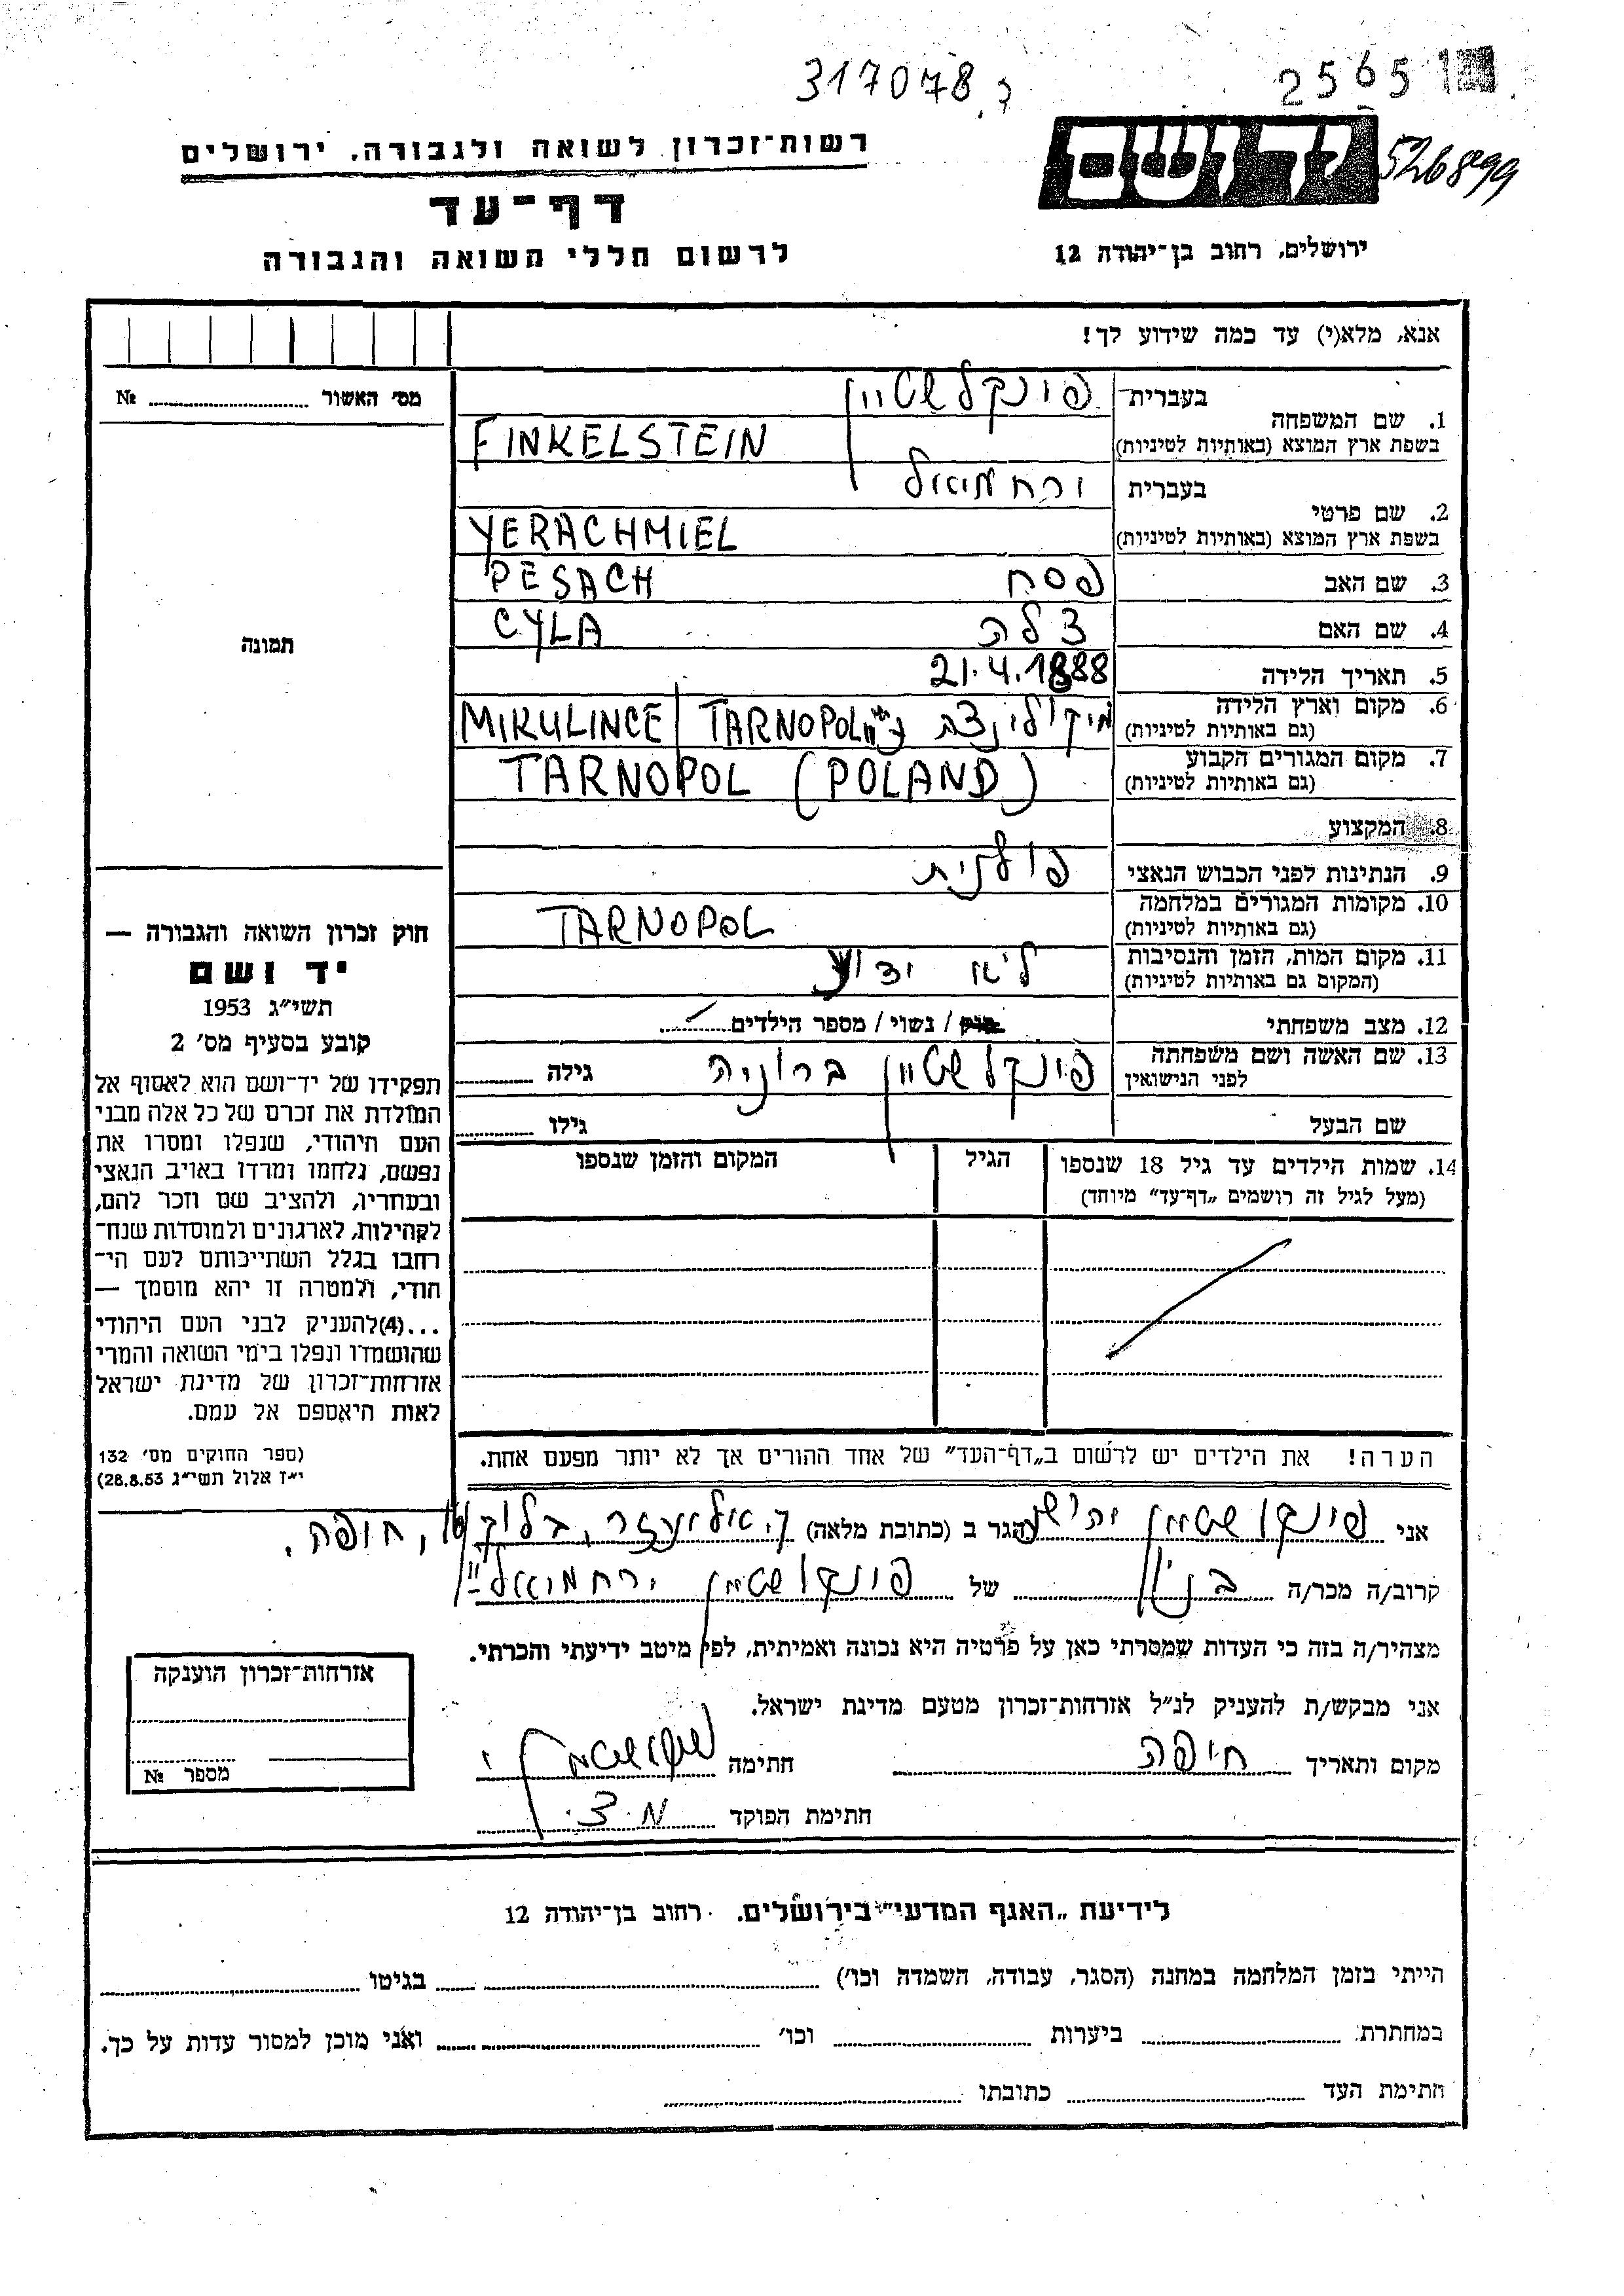 317078 ג
2565
יד ושם
526899
רשות־זכרון לשואה ולגבורה, ירושלים
דף־עד
לרשום חללי השואה והגבורה
ירושלים, רחוב בן־יהודה 12
אנא, מלא(י) עד כמה שידוע לך!
מס׳ האשור № 
תמונה
1. שם המשפחה בעברית פינקלשטיין
בשפת ארץ המוצא (באותיות לטיניות) FINKELSTEIN
2. שם פרטי בעברית ירחמיאל
בשפת ארץ המוצא (באותיות לטיניות) YERACHMIEL
3. שם האב פסח PESACH
4. שם האם צלה CYLA
5. תאריך הלידה 21.4.1888
6. מקום וארץ הלידה
(גם באותיות לטיניות) מיקולינצה TARNOPOL / MIKULINCE
7. מקום המגורים הקבוע
(גם באותיות לטיניות) TARNOPOL (POLAND)
8. המקצוע
9. הנתינות לפני הכבוש הנאצי פולנית
10. מקומות המגורים במלחמה
(גם באותיות לטיניות) TARNOPOL
11. מקום המות, הזמן והנסיבות
(המקום גם באותיות לטיניות) לא ידוע
12. מצב משפחתי רווק / נשוי / מספר הילדים
13. שם האשה ושם משפחתה
לפני הנישואין פינקלשטיין ברוניה גילה
שם הבעל גילו
14. שמות הילדים עד גיל 18 שנספו הגיל המקום והזמן שנספו
(מעל לגיל זה רושמים „דף־עד” מיוחד)
הערה! את הילדים יש לרשום ב„דף־העד” של אחד ההורים אך לא יותר מפעם אחת.
חוק זכרון השואה והגבורה —
יד ושם
תשי״ג 1953
קובע בסעיף מס׳ 2
תפקידו של יד־ושם הוא לאסוף אל
המולדת את זכרם של כל אלה מבני
העם היהודי, שנפלו ומסרו את
נפשם, נלחמו ומרדו באויב הנאצי
ובעוזריו, ולהציב שם וזכר להם,
לקהילות, לארגונים ולמוסדות שנח־
רבו בגלל השתייכותם לעם הי־
הודי, ולמטרה זו יהא מוסמך —
...(4) להעניק לבני העם היהודי
שהושמדו ונפלו בימי השואה והמרי
אזרחות־זכרון של מדינת ישראל
לאות היאספם אל עמם.
(ספר החוקים מס׳ 132
י״ז אלול תשי״ג 28.8.53)
אני פינקלשטיין הגר ב (כתובת מלאה) ק. אליעזר, בלוק, חיפה.
קרוב/ה מכר/ה בן של פינקלשטיין ירחמיאל
מצהיר/ה בזה כי העדות שמסרתי כאן על פרטיה היא נכונה ואמיתית, לפי מיטב ידיעתי והכרתי.
אני מבקש/ת להעניק לנ״ל אזרחות־זכרון מטעם מדינת ישראל.
מקום ותאריך חיפה חתימה
חתימת הפוקד מ.צ.
אזרחות־זכרון הוענקה
מספר №
לידיעת „האגף המדעי” בירושלים, רחוב בן־יהודה 12
הייתי בזמן המלחמה במחנה (הסגר, עבודה, השמדה וכו׳) בגיטו
במחתרת ביערות וכו׳ ואני מוכן למסור עדות על כך.
חתימת העד כתובתו